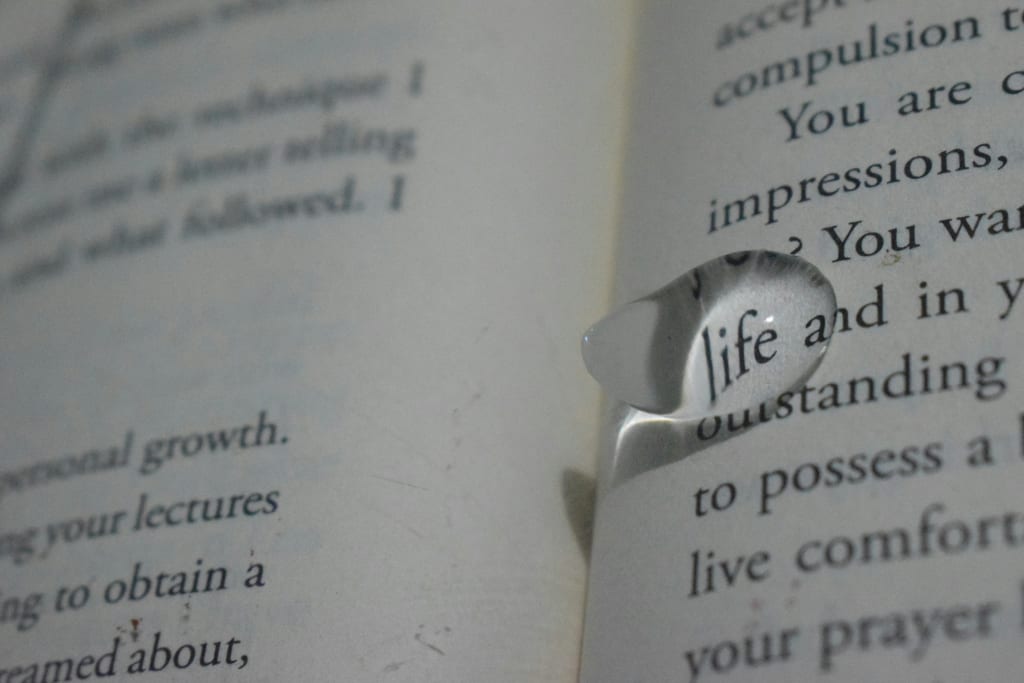 with the technique I
me a letter telling
and what followed. I
personal growth.
your lectures
to obtain a
about,
accept
compulsion
You are
impressions,
? You
life and in
outstanding
to possess a
live
your prayer